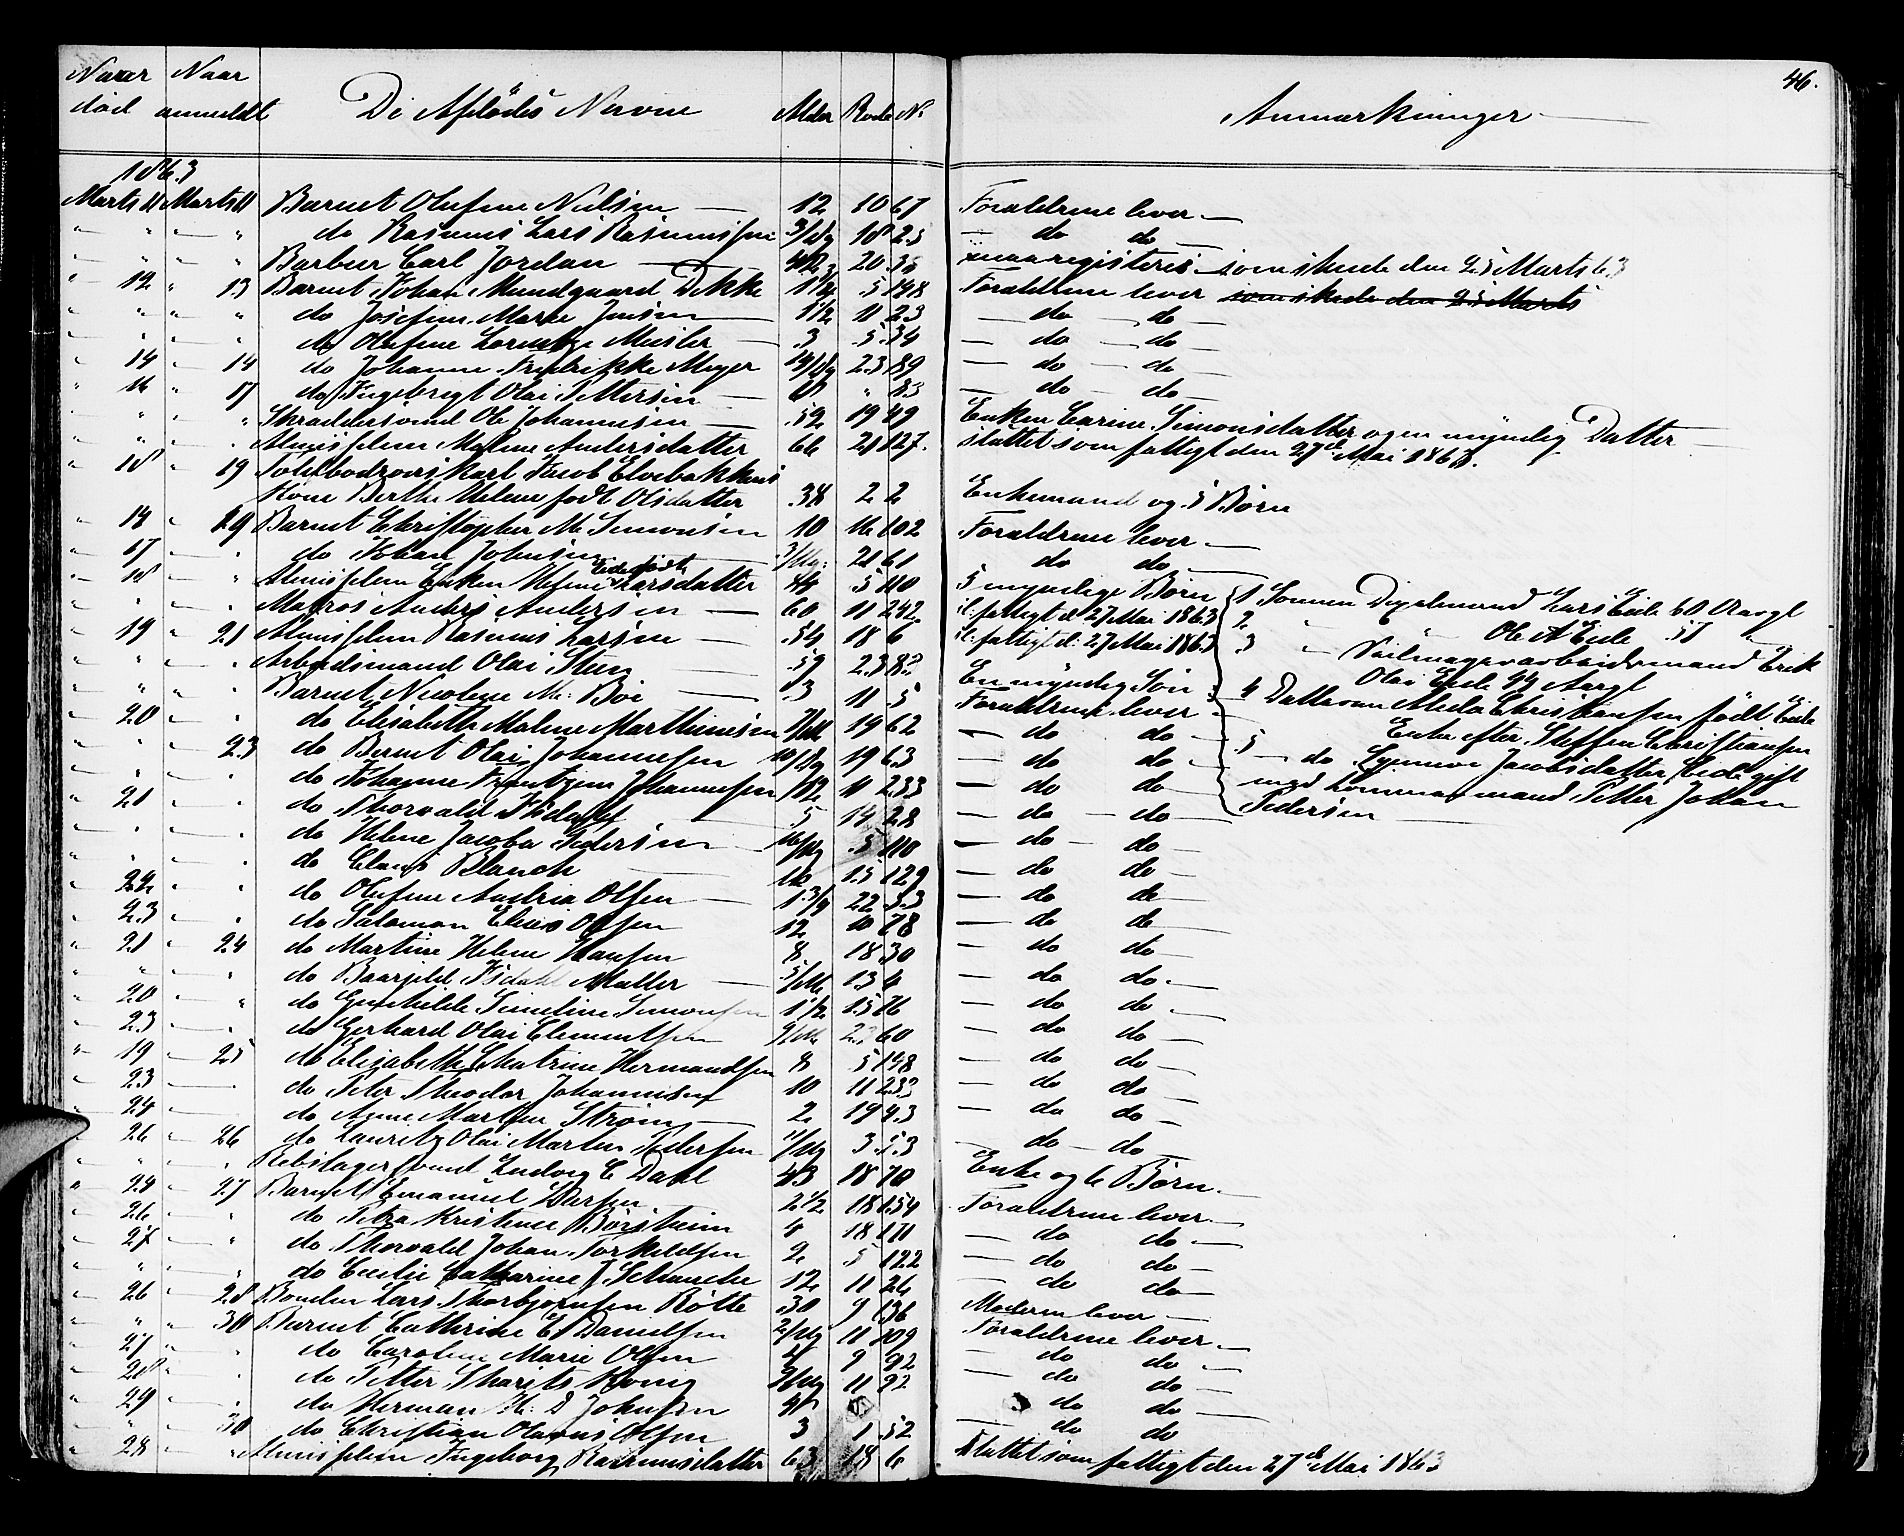 46.
Naar død Naar anmeldt De Afdødes Navne Alder Rode No Anmærkninger
1863
Marts 11 Marts 11 Barnet Olufine Nielsen 12 10 67 Forældrene lever
" " " do Rasmus Lars Rasmussen 3/Dg 18 25 do do
" " " Barbeer Carl Jordan 42 20 maa registeres som skede den 25 Marts 63
" 12 " 13 Barnet Johan Mundgaard Dekke 1 1/2 5 198 Forældrene lever som skede den 25 Marts
" " " do Josefine Marie Jensen 1 1/2 11 23 do do
do Olufine Lorentze Meisler 3 5 34 do do
" 14 " 14 do Johanne Fredrikke Meyer 14/Dg 23 89 do do
" 16 " 17 do Ingebregt Olai Pettersen " 83 do do
" " " Skræddersvend Ole Johannesen 52 19 49 Enken Carine Simonsdatter og en myndig Datter
" " " Almisselem Malene Andersdatter 66 21 127 sluttet som fattigt den 27de Mai 1863.
" 18 " 19 Toldbodroerskarl Jacob Elvebakkens
Kone Berthe Helene født Olsdatter 38 2 2 Enkemand og 5 Børn
" 14 " 19 Barnet Christopher M. Simonsen 10 16 102 Forældrene lever
" 17 " do Johan Johnsen 3/Ug 21 61 do do
" 18 " " Almisselem Enken Helene Eide født Larsdatter 5 110 5 myndige Børn
" " " Matros Anders Andersen 60 11 242 sl. fattigt d. 27 Mai 1863
" 19 " 21 Almisselem Rasmus Larsen 54 18 6 sl. fattigt d. 27 Mai 1863
" " " Arbeidsmand Olai Steen 59 23 82 En myndig Søn
" " " Barnet Nicoline M. Bøe 3 11 5 Forældrene lever
" 20 " " do Elisabeth Malene Marthinesen 14 62 do do
" " 23 do Bernt Olai Johannesen 10/Dg 19 63 do do
" " " do Johanne Johannesen 11 233 do do
" 21 " " do Thorvald 5 14 28 do do
" " " do Helene Jacoba Pedersen 5 110 do do
" " " do Claus Blanck 10 15 129 do do
" 22 " " do Olufine Andrea Olsen 1 3/4 22 33 do do
" 23 " " do Salomon Elias Olsen 12 10 78 do do
" 21 " 24 do Martine Helene Hansen 8 18 30 do do
" " " do Isdahl Møller 5/Mt 13 6 do do
" 20 " " do Gunhilde Simeline Simonsen 1 1/2 15 16 do do
" 23 " " do Gerhard Olai Clementsen 9/Mt 60 do do
" 19 " 25 do Elisabeth Chatrine Hermandsen 8 5 198 do do
" 23 do Peter Theodor Johannesen 10 11 232 do do
" 24 do Anne Martha Strøm 2 19 43 do do
" 26 " 26 do Lauritz Olai Marten Pedersen 11/Ug 3 53 do do
" " " Rebslagersvend Ludvig C Dahl 43 18 70 Enke og 6 Børn.
" 24 " 27 Barnet Emanuel 2 1/2 18 154 Forældrene lever
" 26 " " do Petra Kristence Børsheim 4 18 171 do do
" 27 " " do Thorvald Johan Torkeldsen 2 5 122 do do
" " " do Cecilie Catharine J Schanche 12 11 26 do do
" 26 " 28 Bonden Lars Thorbjørnsen Røtte 30 9 136 Moderen lever
" " " 30 Barnet Cathrine E Danielsen 2/Ug 11 109 Forældrene lever
" 27 " do Caroline Marie Olsen 4 9 92 do do
" 28 " do Petter Kong 11 22 do do
" 29 " do Herman H. D Johnsen do do
" " 30 do Christian Olavus Olsen 3 1 52 do do
" 28 " " Almisselem Ingeborg Rasmusdatter 63 18 6 Sluttet som fattigt den 27de Mai 1863
1 Sønnen Lars Eide 60 Aargl
2 " Ole A Eide 51 "
3 " Seilmagerarbeidsmand Erik
Olai Eide 44 Aargl
4 Datteren Christiansen født Eide
Enke efter Steffen Christiansen
5 do Jacobsdatter Eide gift
med Lommemand Petter Johan
Pedersen